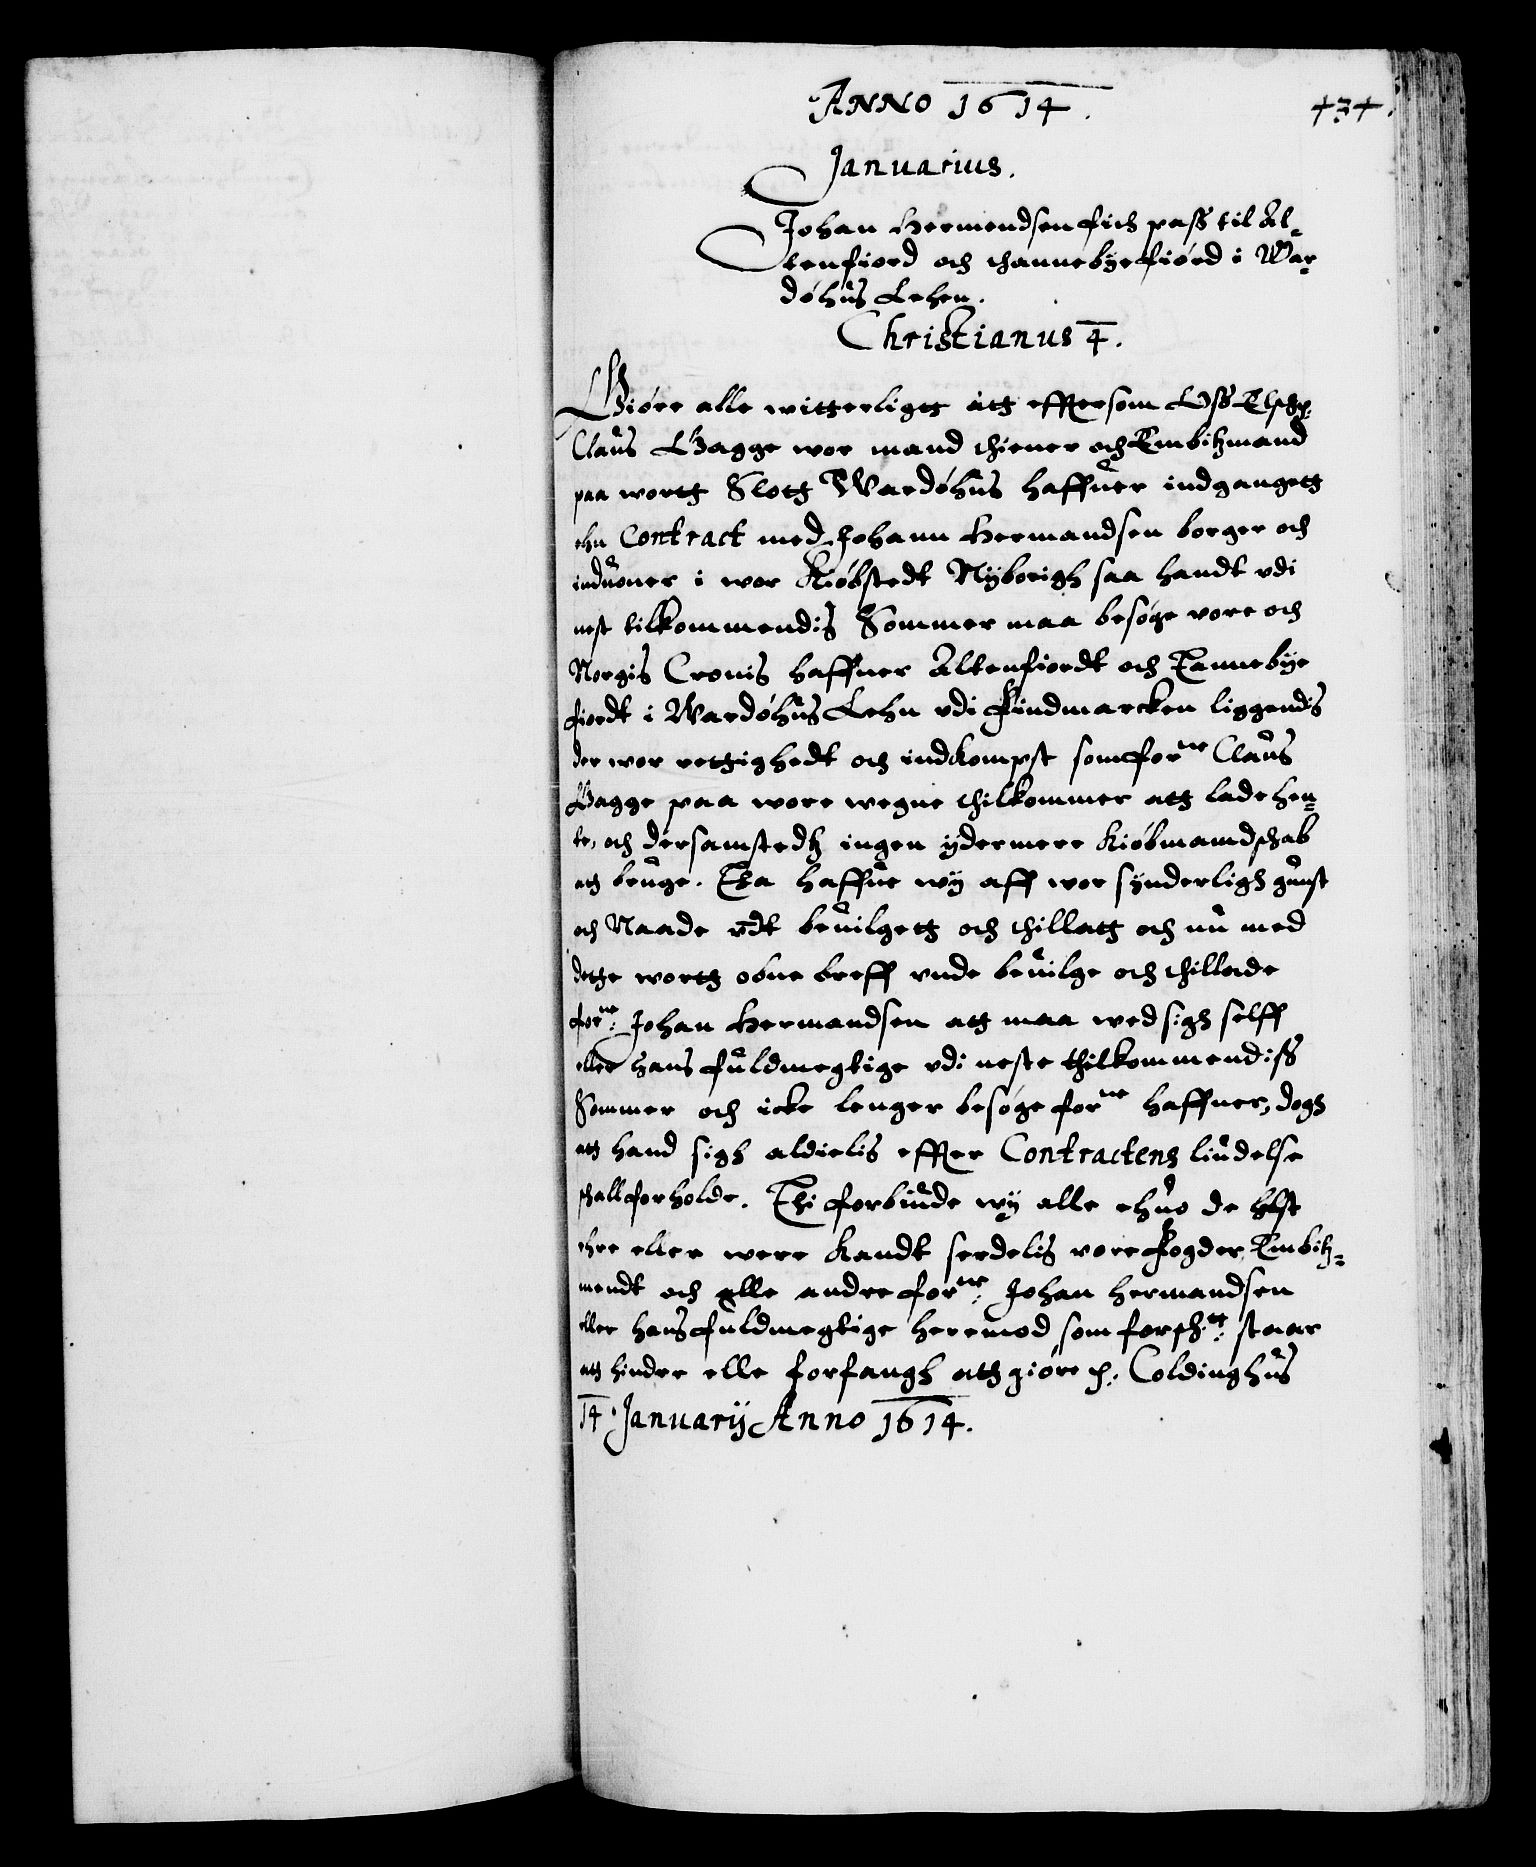 ANNO 1614.
434.
Januarius.
Johan Hermendsen fich pass til Al-
tenfiord och thannebyefiörd i War-
döhus Lehen.
Christianus 4.
Giöre alle witterligtt att effttersom Oss Elsche.
Claus Gagge wor mand thiener och Embitzmand
paa wortt Slott Wardöhus haffuer indgangett
ehn Contract med Johann Hermandsen borger och
induoner i wor Kiöbstedt Nyborigh saa handt vdi
nest tilkommendis Sommer maa besöge vore och
Norgis Cronis haffner Altenfiordt och Tannebye
fiordt i Wardöhus Lehn vdi Findmarcken liggendis
der wor rettighedt och indkompst som forne Claus
Gagge paa wore wegne thilkommer att lade hen-
te, och dersamstedtz ingen ydermere Kiöbmamdschab
att bruge. Tha haffue wy aff wor synderligh gunst
och Naade vdt beuilgett och thillatt och nu med
dette wortt obne breff vnde beuilge och thillade
forne: Johan Hermandsen att maa wed sigh selff
eller hans fuldmegtige vdi neste thilkommendiss
Sommer och icke lenger besöge forne haffner, dogh
att hand sigh aldielis effter Contractens liudelse
schall forholde. Thi forbiude wy alle ehuo de helst
ehre eller were kandt serdelis vore Fogder, Embitz-
mendt och alle andre forne: Johan Hermandsen
eller hans fuldmegtige heremod som forsch:tt staar
att hindre elle forfangh att giöre p. Coldinghus
14 Januarij Anno 1614.